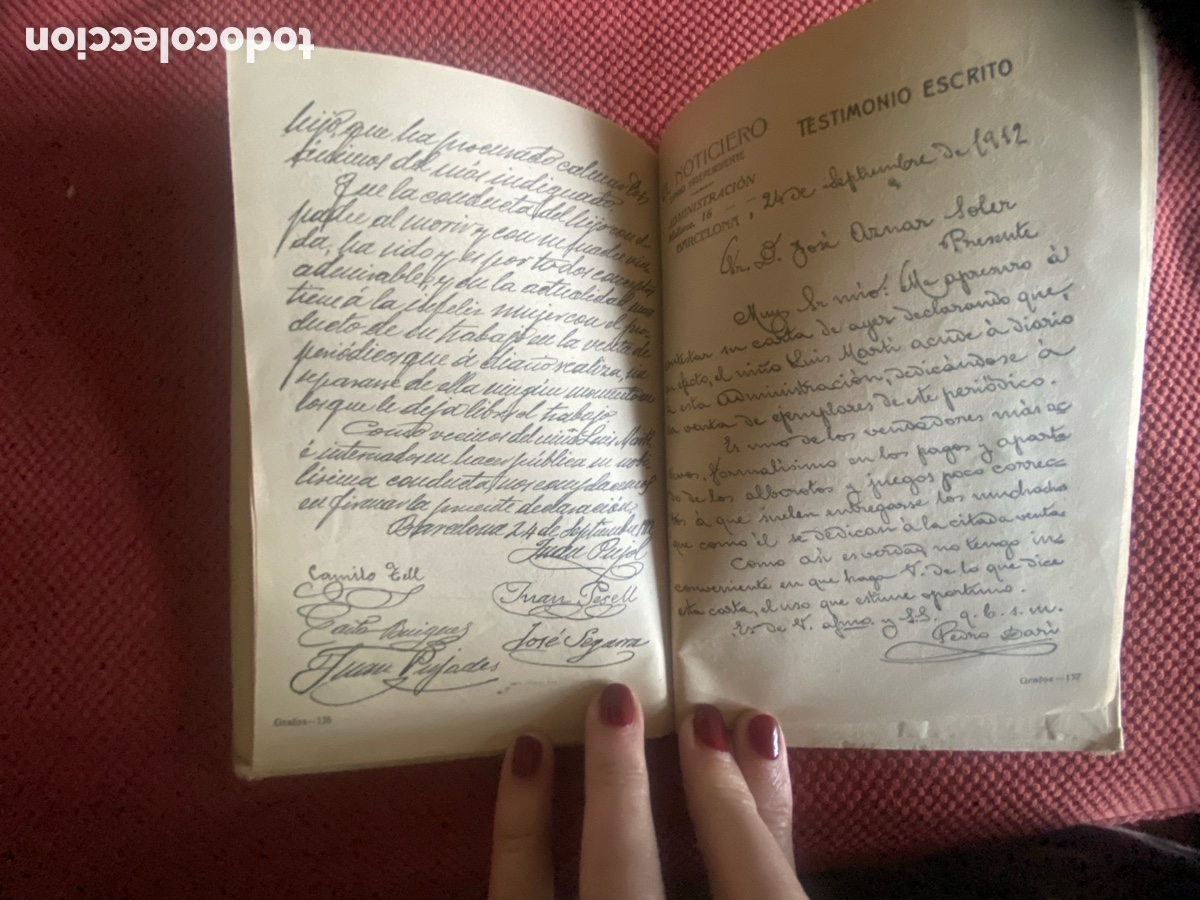 todocoleccion
hijo, que ha procurado calmar los
ánimos del más indignado.
Que la conducta del hijo con el
padre al morir y con su madre viu
da, ha sido y es por todos conceptos
admirable, y en la actualidad
tiene á la infeliz mujer con el pro-
ducto de su trabajo en la venta de
periódicos que á diario realiza, sin
separarse de ella ningún momento en
los que le deja libre el trabajo.
Como vecinos del niño Luis Martí
é interesados en hacer pública su nobi
lísima conducta, nos complacemos
en firmar la presente declaración.
Barcelona 24 de Septiembre
Juan Pujol
Camilo Tell
Juan
José Segarra
Juan Pujades
Grafos—136
TESTIMONIO ESCRITO
EL NOTICIERO
DIARIO INDEPENDIENTE
ADMINISTRACIÓN
Mallorca 16
BARCELONA, 24 de Septiembre de 1912
Sr. D. José Aznar Soler
Presente
Muy Sr. mio: Me apresuro á
contestar su carta de ayer declarando que,
en efecto, el niño Luis Martí acude á diario
á esta Administración, dedicándose á
la venta de ejemplares de este periódico.
Es uno de los vendedores más ac
tivos, formalísimo en los pagos y aparta
do de los alborotos y juegos poco correc
tos á que suelen entregarse los muchachos
que como él se dedican á la citada venta.
Como así es verdad no tengo in
conveniente en que haga V. de lo que dice
esta carta, el uso que estime oportuno.
Es de V. afmo. y S.S. q. b. s. m.
Pedro
Grafos—137